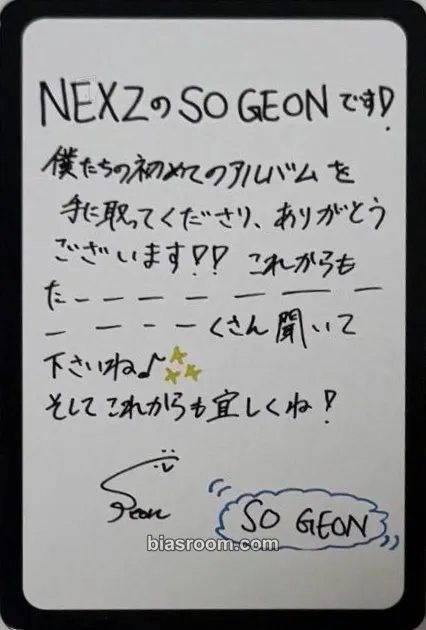 NEXZの SO GEON です!
僕たちの初めてのアルバムを
手に取ってくださり、ありがとう
ございます!! これからも
たーーーーーーー
ーーーーくさん聞いて
下さいね♪
そしてこれからも宜しくね!
Geon
SO GEON
biasroom.com